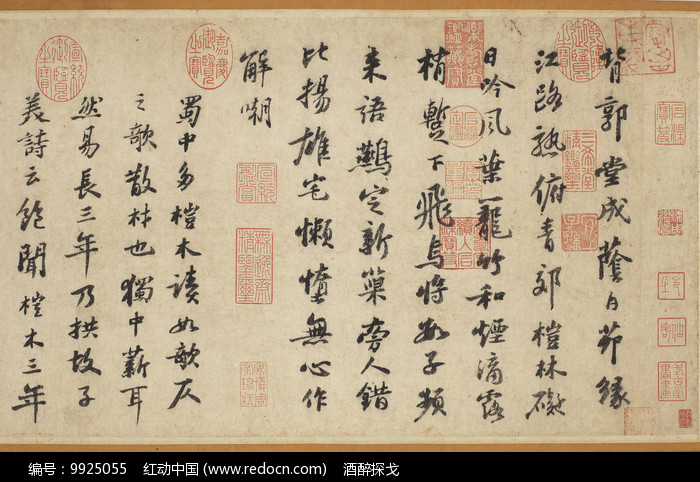 背郭堂成蔭白茅緣
江路熟俯青郊榿林礙
日吟風葉籠竹和煙滴露
梢蹔下飛烏將數子頻
来語鷰定新巢旁人錯
比揚雄宅懶惰無心作
解嘲
蜀中多榿木讀如欹仄
之欹散材也獨中薪耳
然易長三年乃拱故子
美詩云飽聞榿木三年
嘉慶御覽之寶
宣統御覽之寶
三希堂精鑑璽
宜子孫
编号：9925055 红动中国 (www.redocn.com) 酒醉探戈